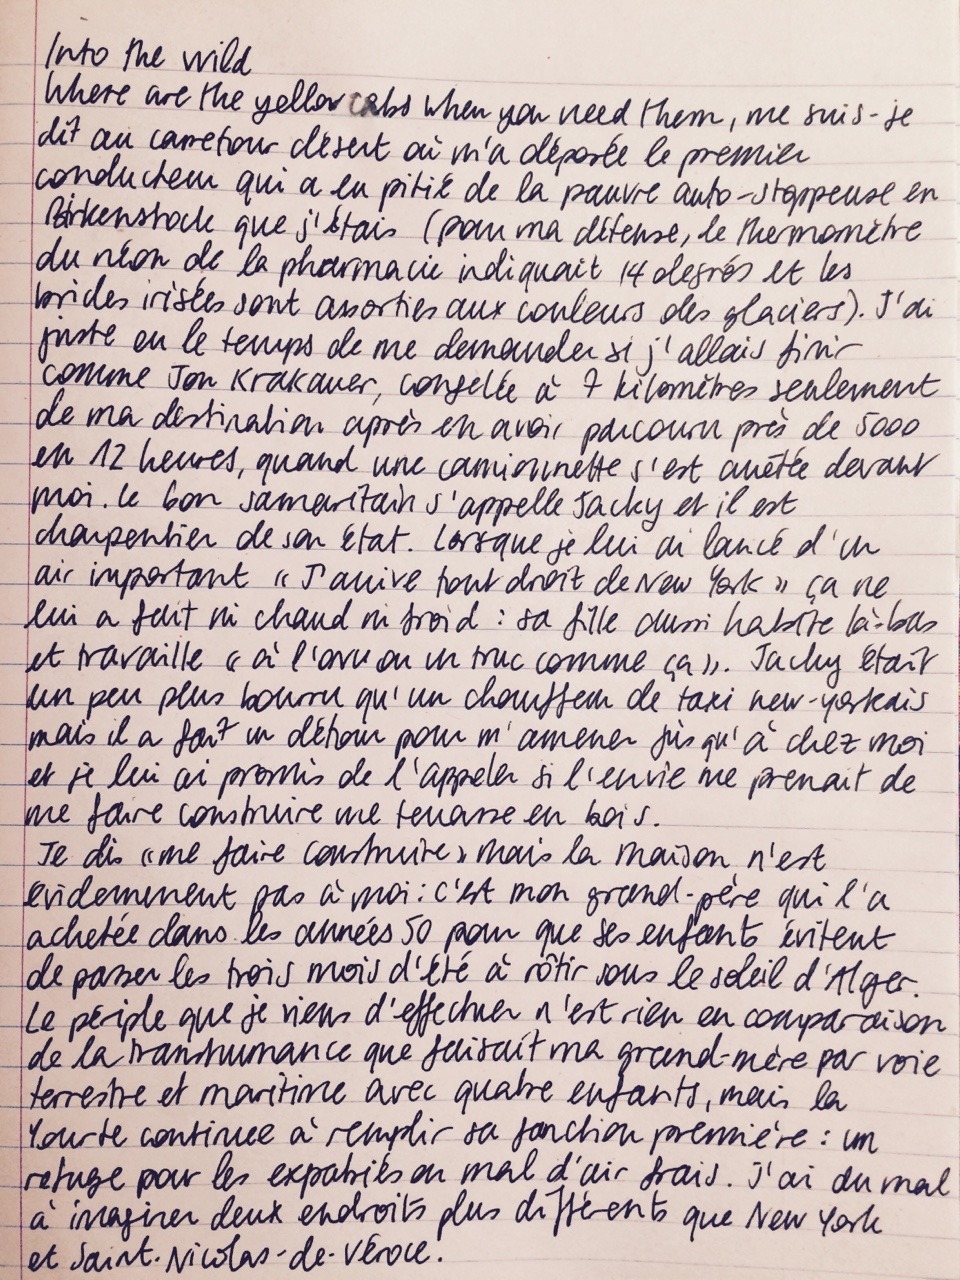 Into the wild
Where are the yellow cabs when you need them, me suis-je
dit au carrefour désert où m'a déposée le premier
conducteur qui a eu pitié de la pauvre auto-stoppeuse en
Birkenstock que j'étais (pour ma défense, le thermomètre
du néon de la pharmacie indiquait 14 degrés et les
brides irisées sont assorties aux couleurs des glaciers). J'ai
juste eu le temps de me demander si j'allais finir
comme Jon Krakauer, congelée à 7 kilomètres seulement
de ma destination après en avoir parcouru près de 5000
en 12 heures, quand une camionnette s'est arrêtée devant
moi. Le bon samaritain s'appelle Jacky et il est
charpentier de son état. Lorsque je lui ai lancé d'un
air important « J'arrive tout droit de New York » ça ne
lui a fait ni chaud ni froid : sa fille aussi habite là-bas
et travaille « à l'onu ou un truc comme ça ». Jacky était
un peu plus bourru qu'un chauffeur de taxi new-yorkais
mais il a fait un détour pour m'amener jusqu'à chez moi
et je lui ai promis de l'appeler si l'envie me prenait de
me faire construire une terrasse en bois.
Je dis « me faire construire » mais la maison n'est
évidemment pas à moi : c'est mon grand-père qui l'a
achetée dans les années 50 pour que ses enfants évitent
de passer les trois mois d'été à rôtir sous le soleil d'Alger.
Le périple que je viens d'effectuer n'est rien en comparaison
de la transhumance que faisait ma grand-mère par voie
terrestre et maritime avec quatre enfants, mais la
Yourte continue à remplir sa fonction première : un
refuge pour les expatriés en mal d'air frais. J'ai du mal
à imaginer deux endroits plus différents que New York
et Saint-Nicolas-de-Véroce.